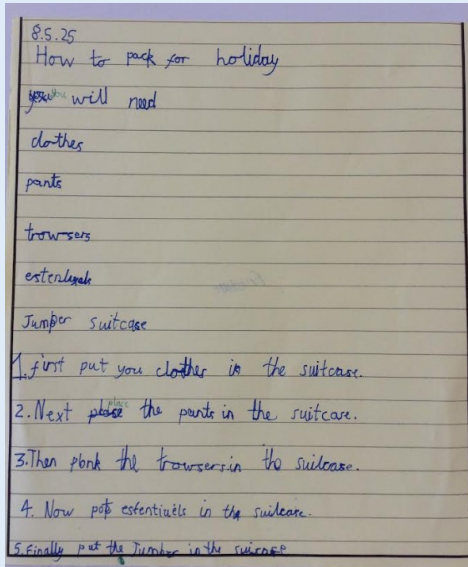 8.5.25
How to pack for holiday
you will need
clothes
pants
trowsers
Jumper suitcase
1. first put you clothes in the suitcase.
2. Next place the pants in the suitcase.
3. Then plonk the trowsers in the suitcase.
4. Now pop esfentiuels in the suitcase.
5. Finally put the Jumber in the suitcase